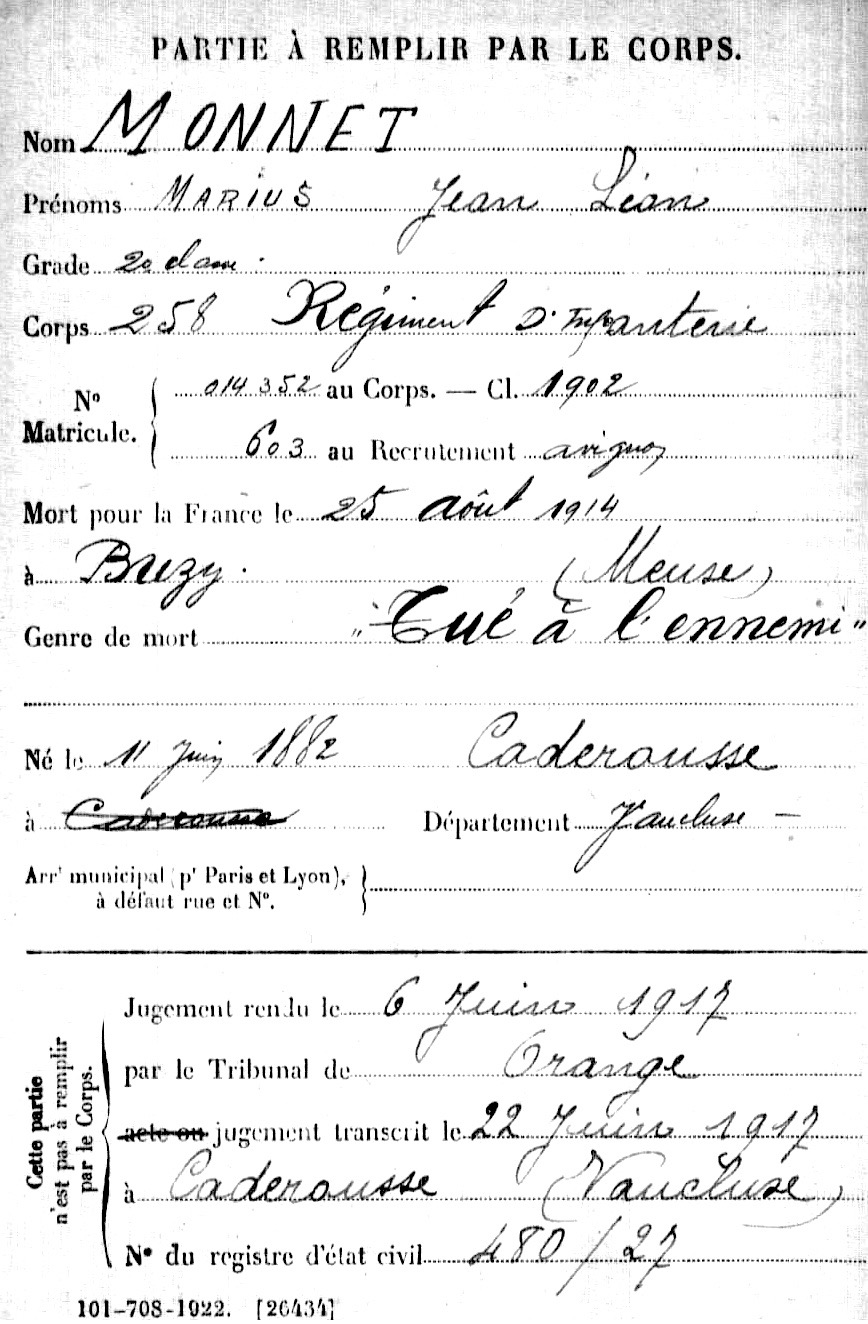 PARTIE À REMPLIR PAR LE CORPS.
Nom MONNET
Prénoms MARIUS Jean Léon
Grade 2e classe.
Corps 258 Régiment D'Infanterie
No Matricule. 014352 au Corps. — Cl. 1902
603 au Recrutement avignon
Mort pour la France le 25 août 1914
à Brezy. (Meuse)
Genre de mort "Tué à l'ennemi"
Né le 11 Juin 1882 Caderousse
à Caderousse Département Vaucluse —
Arrt municipal (pr Paris et Lyon),
à défaut rue et N°.
Cette partie n'est pas à remplir par le Corps.
Jugement rendu le 6 Juin 1917
par le Tribunal de Orange
acte ou jugement transcrit le 22 Juin 1917
à Caderousse (Vaucluse)
N° du registre d'état civil 480/27
101-708-1922. [26434]